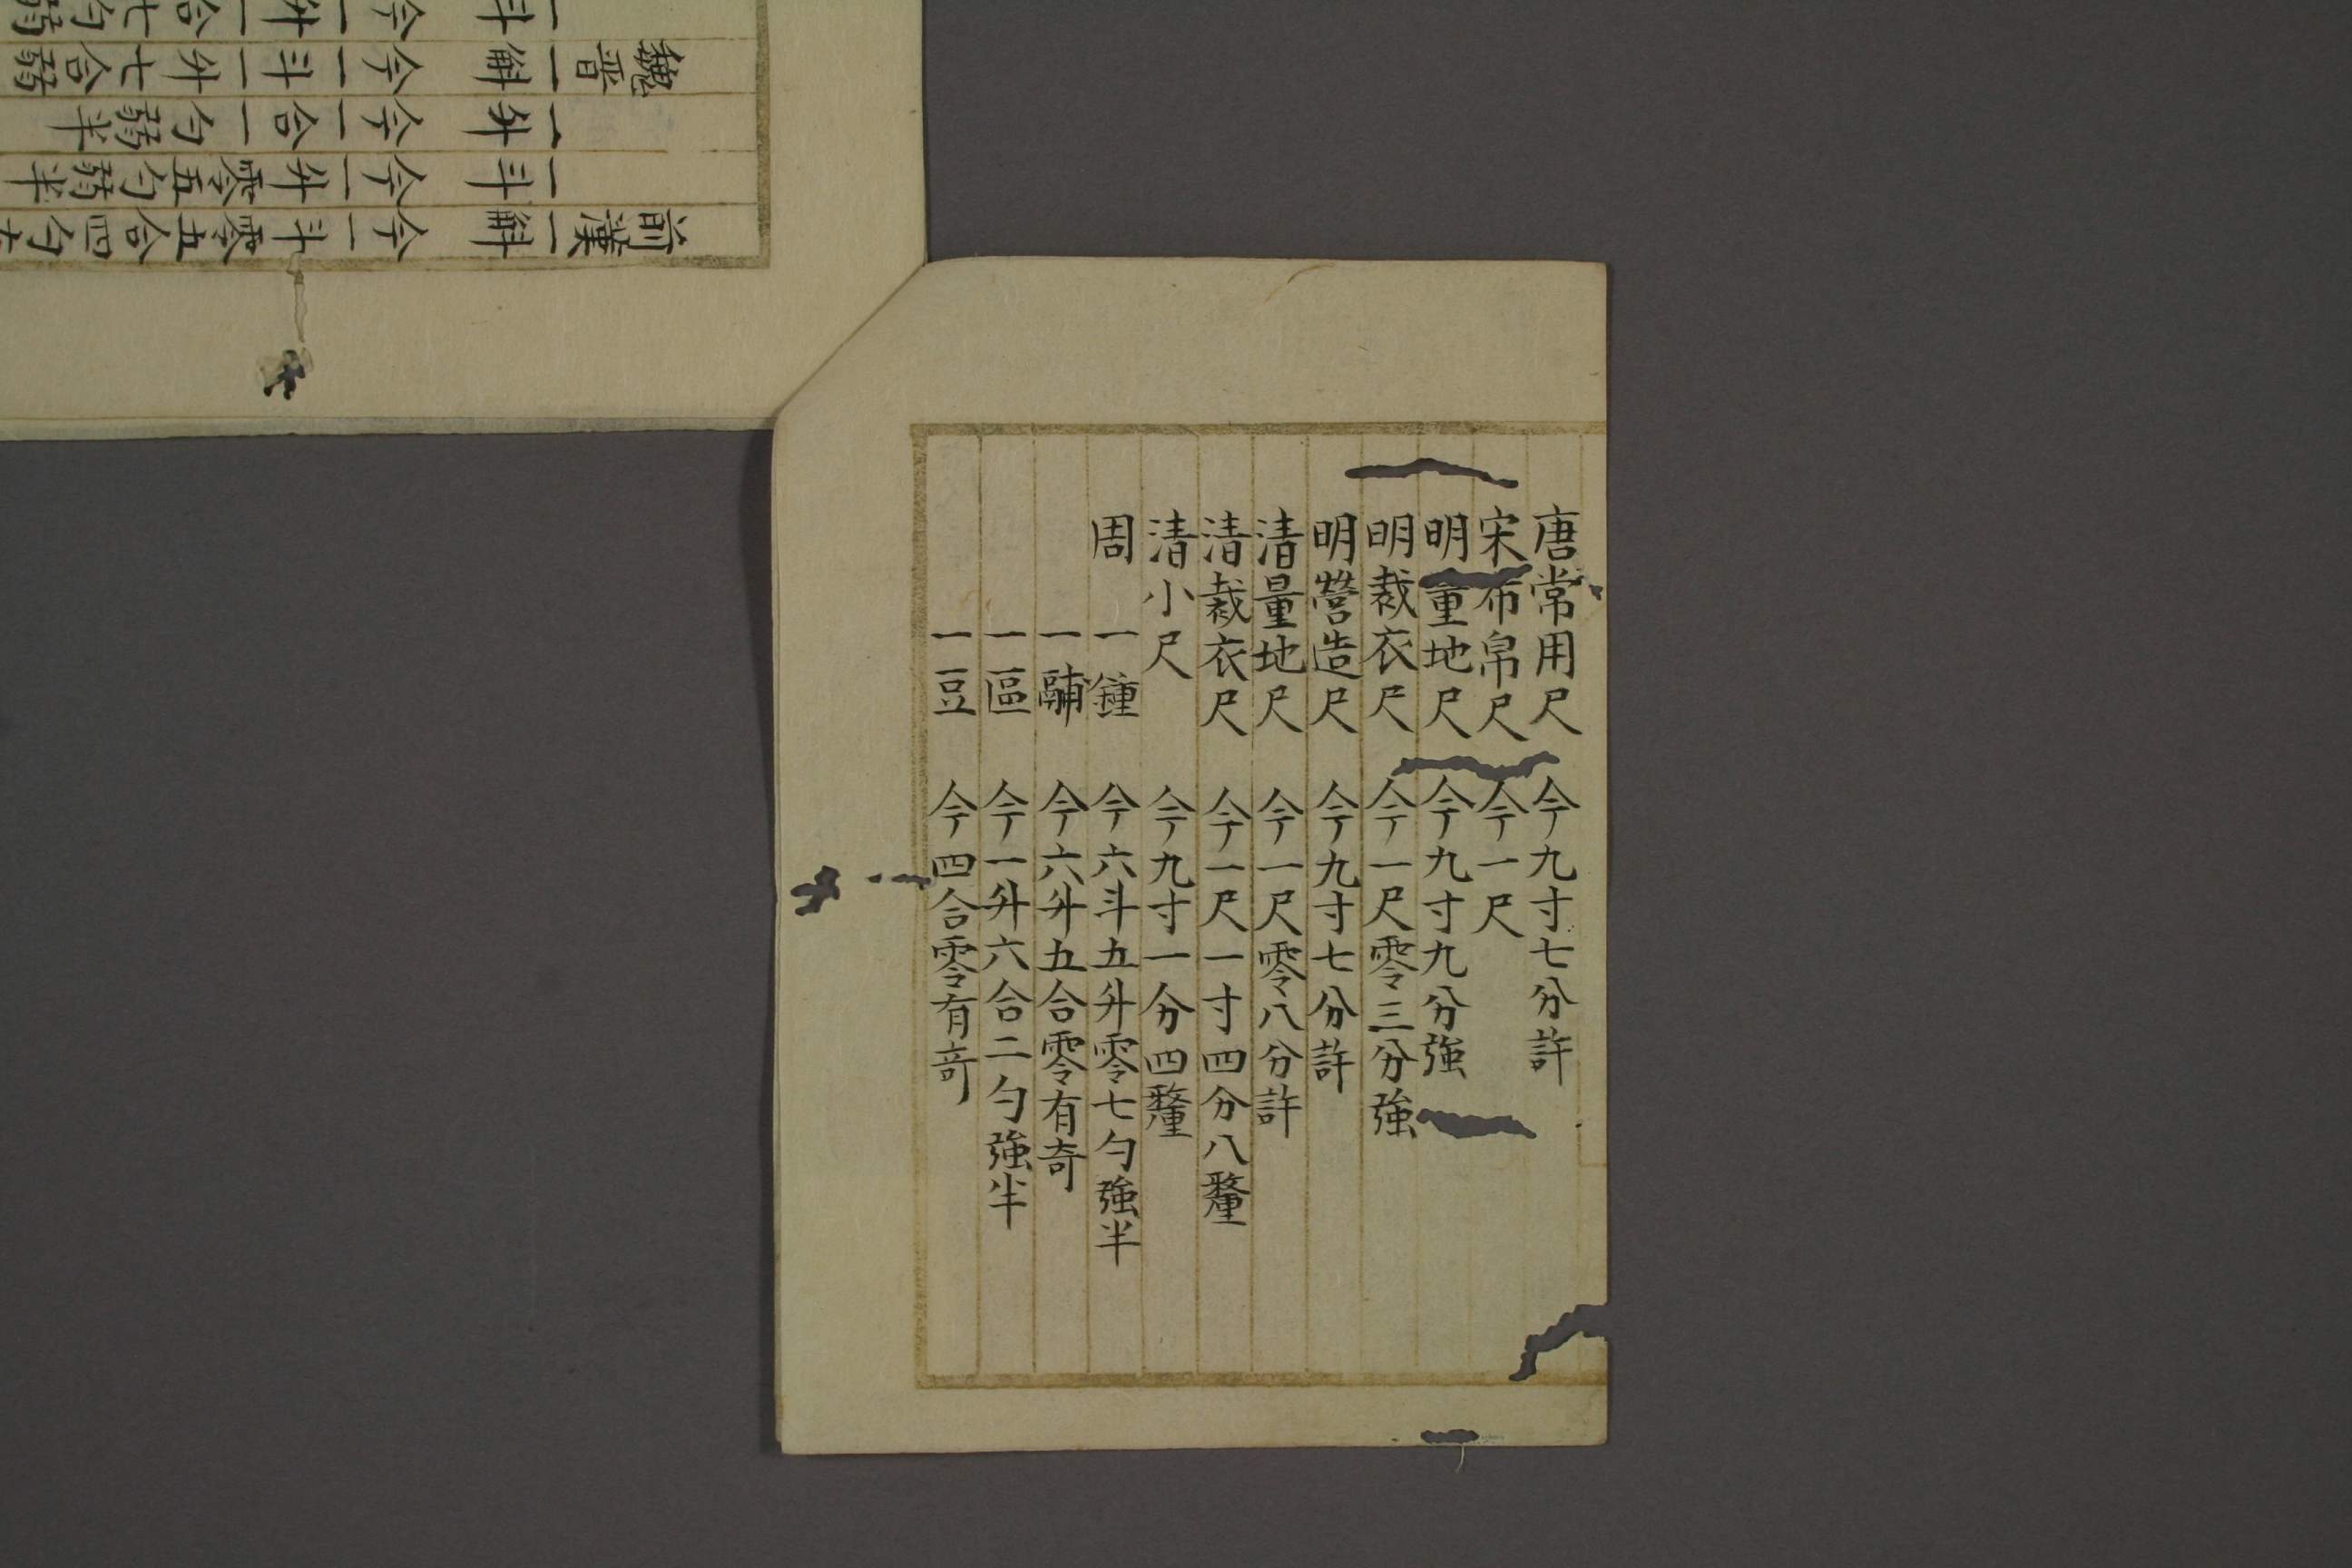 唐常用尺 今九寸七分許
宋布帛尺 今一尺
明量地尺 今九寸九分強
明裁衣尺 今一尺零三分強
明營造尺 今九寸七分許
清量地尺 今一尺零八分許
清裁衣尺 今一尺一寸四分八釐
清小尺 今九寸一分四釐
周 一鍾 今六斗五升零七勺強半
一鬴 今六升五合零有奇
一區 今一升六合二勺強半
一豆 今四合零有奇
前漢一斛 今一斗零五合四勺
一斗 今一升零五勺弱半
一升 今一合一勺弱半
魏晋一斛 今一斗一升七合弱
一斗 今一升一合七勺弱